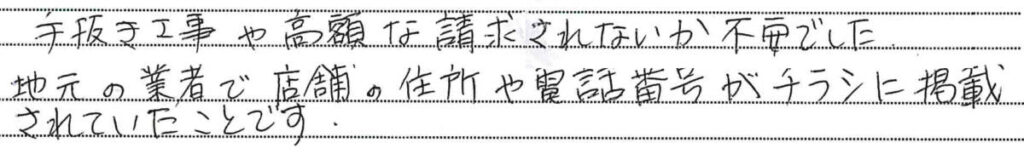 手抜き工事や高額な請求されないか不安でした.
地元の業者で店舗の住所や電話番号がチラシに掲載
されていたことです.